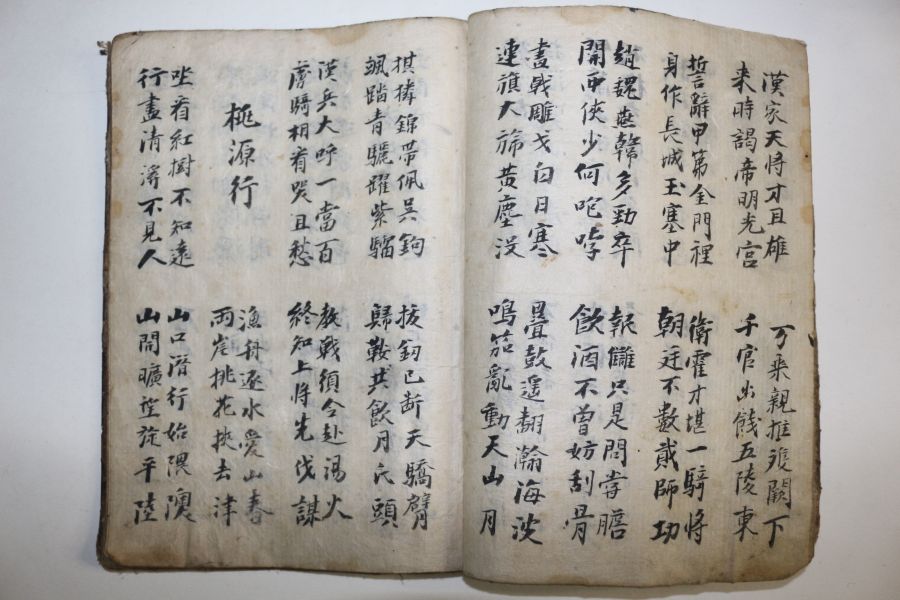 漢家天將才且雄
来時謁帝明光宮
万乘親推雙闕下
千官出餞五陵東
誓辭甲第金門裡
身作長城玉塞中
衛霍才堪一騎將
朝廷不數貳師功
趙魏燕韓多勁卒
関西俠少何咆哮
報讎只是聞嘗膽
飮酒不曾妨刮骨
畵戟雕戈白日寒
連旗大旆黄塵没
疊鼓遥翻瀚海波
鳴笳亂動天山月
錦帶佩吴鉤
颯踏青驪躍紫騮
拔釼已断天驕臂
歸鞍共飮月氏頭
漢兵大呼一當百
虜騎相看哭且愁
教戰須令赴湯火
終知上將先伐謀
桃源行
漁舟逐水愛山春
両崖桃花挾去津
坐看紅樹不知遠
行盡清溪不見人
山口潛行始隈澳
山開曠望旋平陸